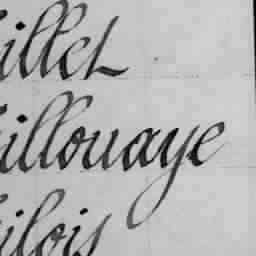 illet
illouaye
ilois